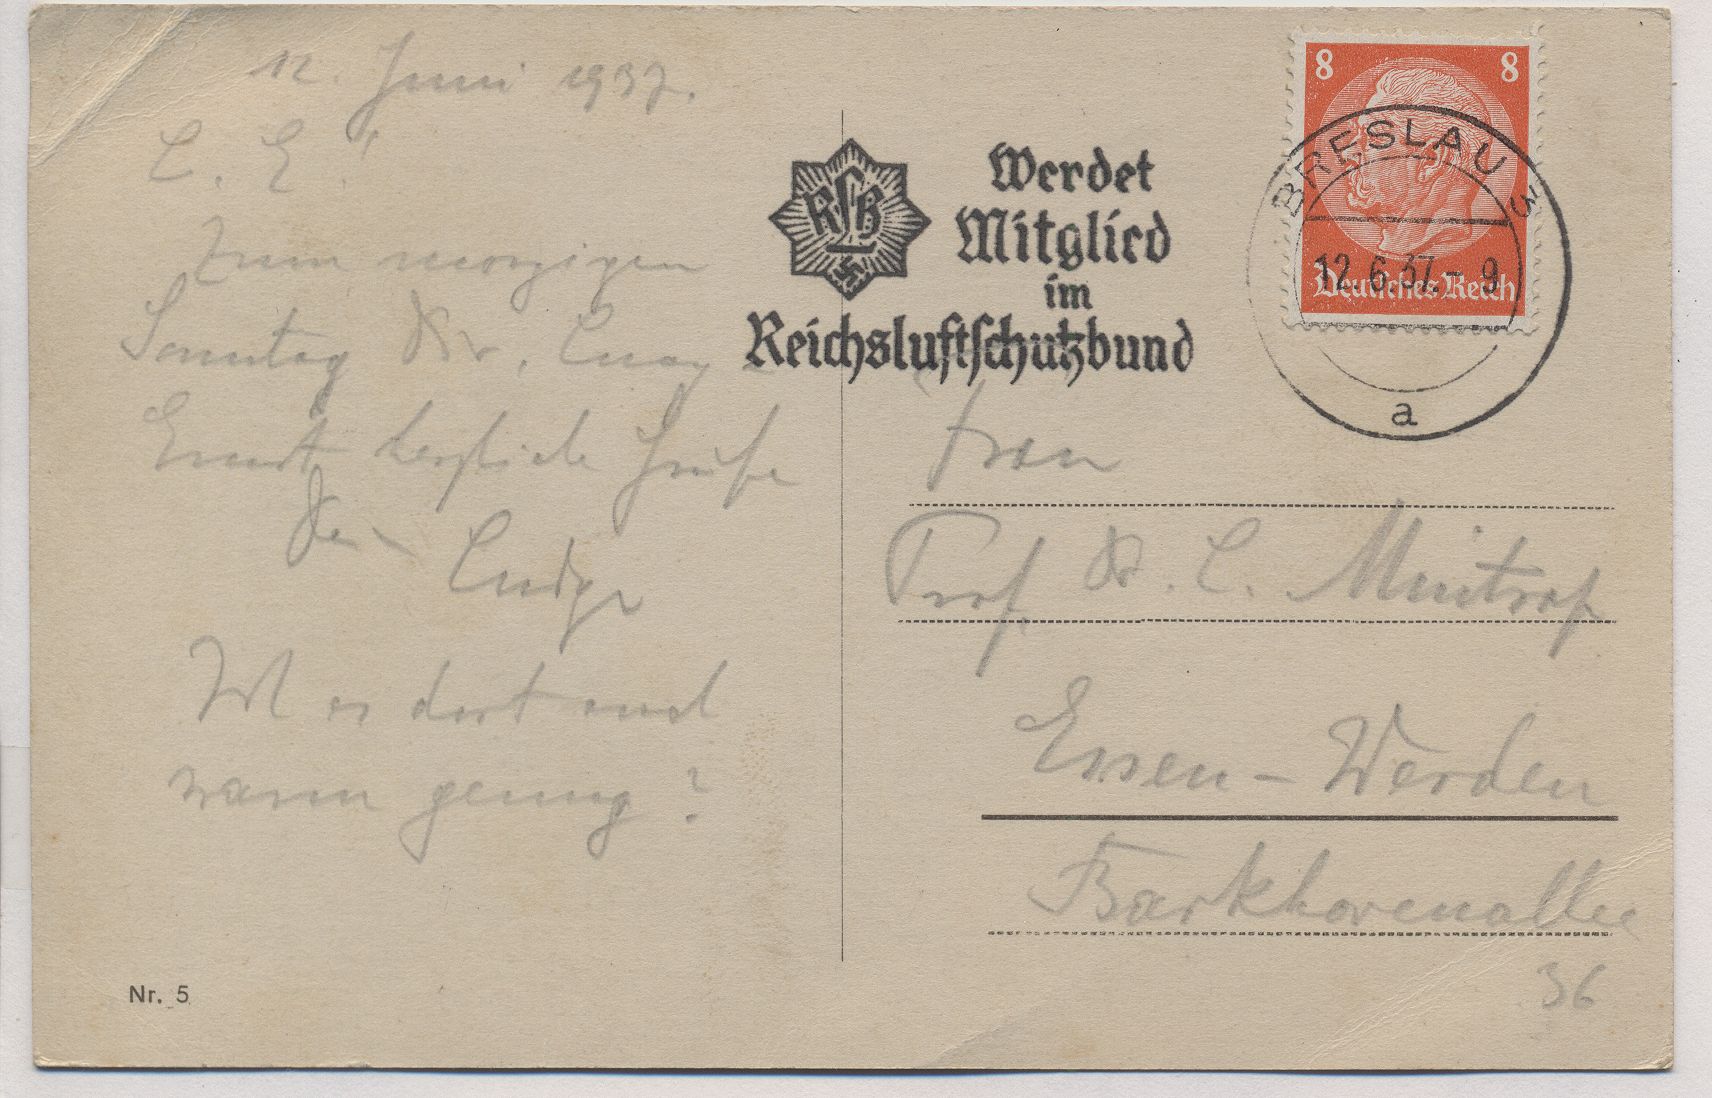 12. Juni 1937.
L. E.!
Zum morzigen
Sonntag Dir,
Ernst herzliche Grüße
Dein
Ludger
Ist es dort auch
warm genug?
Nr. 5
RLB
Werdet
Mitglied
im
Reichsluftschutzbund
8 8
Deutsches Reich
BRESLAU 3
12.6.37.- 9
a
Frau
Prof. Dr. L. Mintrop
Essen-Werden
Barkhovenallee
36